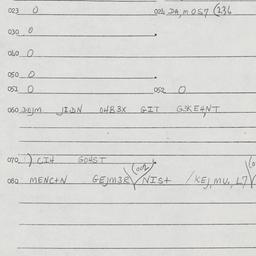 023 0 024 DA,M 057 (236
030 0
040 0
050 0
051 0 052 0
060 DOJM JIDN OHB3X GIT G3KE4NT
070 ) CIH GOHST
080 MENC+N GEJM3R (002 NIS+ /KEJ,MU,L7